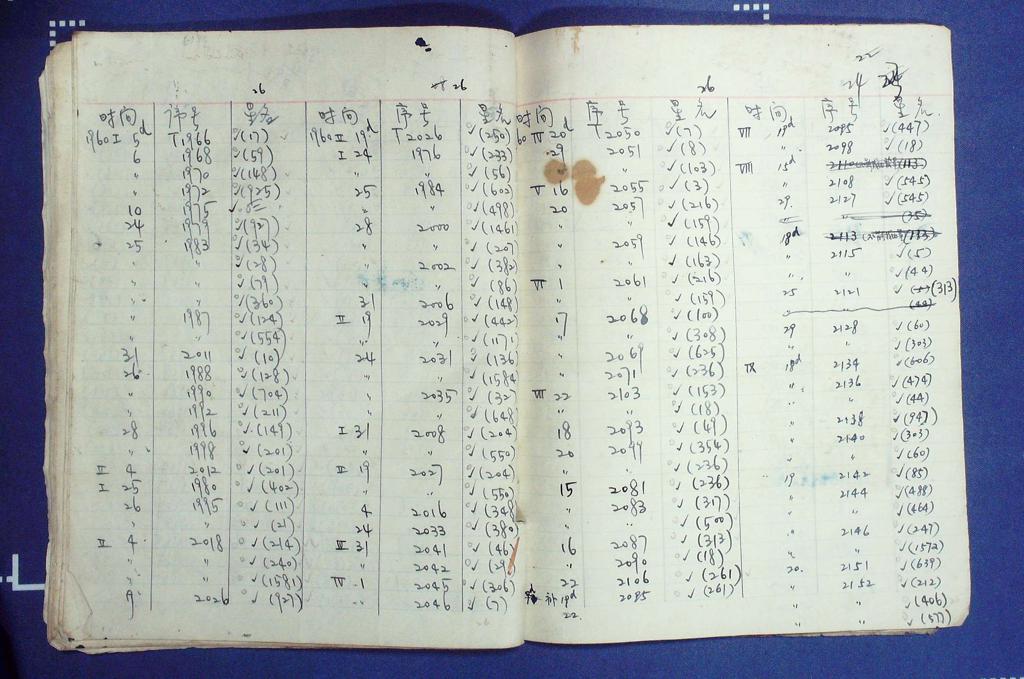 26
时间 序号 星名
1960 I 5d T1966 ✓(17)
6 1968 ✓(59)
〃 1970 ✓(148)
〃 1972 ✓(925)
10 1975 ✓
24 1979 ✓(927)
25 1983 ✓(34)
〃 〃 ✓(28)
〃 〃 ✓(79)
〃 〃 ✓(360)
〃 1987 ✓(124)
〃 〃 ✓(554)
31 2011 ✓(10)
26 1988 ✓(128)
〃 1990 ✓(704)
〃 1992 ✓(211)
28 1996 ✓(149)
〃 1998 ✓(201)
II 4 2012 ✓(201)
I 25 1980 ✓(402)
26 1995 ✓(111)
〃 〃 ✓(21)
II 4 2018 ✓(214)
〃 〃 ✓(240)
〃 〃 ✓(1581)
9 2026 ✓(927)
26
时间 序号 星名
1960 II 19d T2026 ✓(250)
I 24 1976 ✓(233)
〃 〃 ✓(56)
25 1984 ✓(602)
〃 〃 ✓(498)
28 2000 ✓(1461)
〃 〃 ✓(207)
〃 2002 ✓(382)
〃 〃 ✓(86)
31 2006 ✓(148)
II 19 2029 ✓(442)
〃 〃 ✓(1171)
24 2031 ✓(136)
〃 〃 ✓(1584)
〃 2035 ✓(32)
〃 〃 ✓(648)
I 31 2008 ✓(204)
〃 〃 ✓(550)
II 19 2027 ✓(204)
〃 〃 ✓(550)
4 2016 ✓(348)
24 2033 ✓(380)
III 31 2041 ✓(46)
〃 2042 ✓(29)
IV 1 2045 ✓(306)
〃 2046 ✓(7)
26
时间 序号 星名
60 IV 20d T2050 ✓(7)
29 2051 ✓(8)
✓(103)
V 16 2055 ✓(3)
20 2057 ✓(216)
〃 〃 ✓(159)
〃 2059 ✓(146)
〃 〃 ✓(163)
VI 1 2061 ✓(216)
〃 〃 ✓(159)
17 2068 ✓(100)
〃 〃 ✓(308)
〃 2069 ✓(625)
〃 2071 ✓(236)
VII 22 2103 ✓(153)
〃 〃 ✓(18)
18 2093 ✓(49)
20 2099 ✓(354)
〃 〃 ✓(236)
15 2081 ✓(236)
〃 2083 ✓(317)
〃 〃 ✓(500)
16 2087 ✓(313)
〃 2090 ✓(18)
22 2106 ✓(261)
补 19d 2095 ✓(261)
22
22
24
时间 序号 星名
VII 19d 2095 ✓(447)
〃 2098 ✓(18)
VIII 15d 2110 (113)
〃 2108 ✓(545)
29 2127 ✓(545)
〃 〃 (35)
18d 2113 (113)
〃 2115 ✓(5)
〃 〃 ✓(44)
25 2121 ✓(313)
〃 (44)
29 2128 ✓(60)
〃 〃 ✓(303)
IX 18d 2134 ✓(606)
〃 2136 ✓(474)
〃 〃 ✓(44)
〃 2138 ✓(947)
〃 2140 ✓(303)
〃 〃 ✓(60)
19 2142 ✓(85)
〃 2144 ✓(488)
〃 〃 ✓(464)
〃 2146 ✓(247)
〃 〃 ✓(1572)
20 2151 ✓(639)
〃 2152 ✓(212)
〃 〃 ✓(406)
〃 〃 ✓(577)